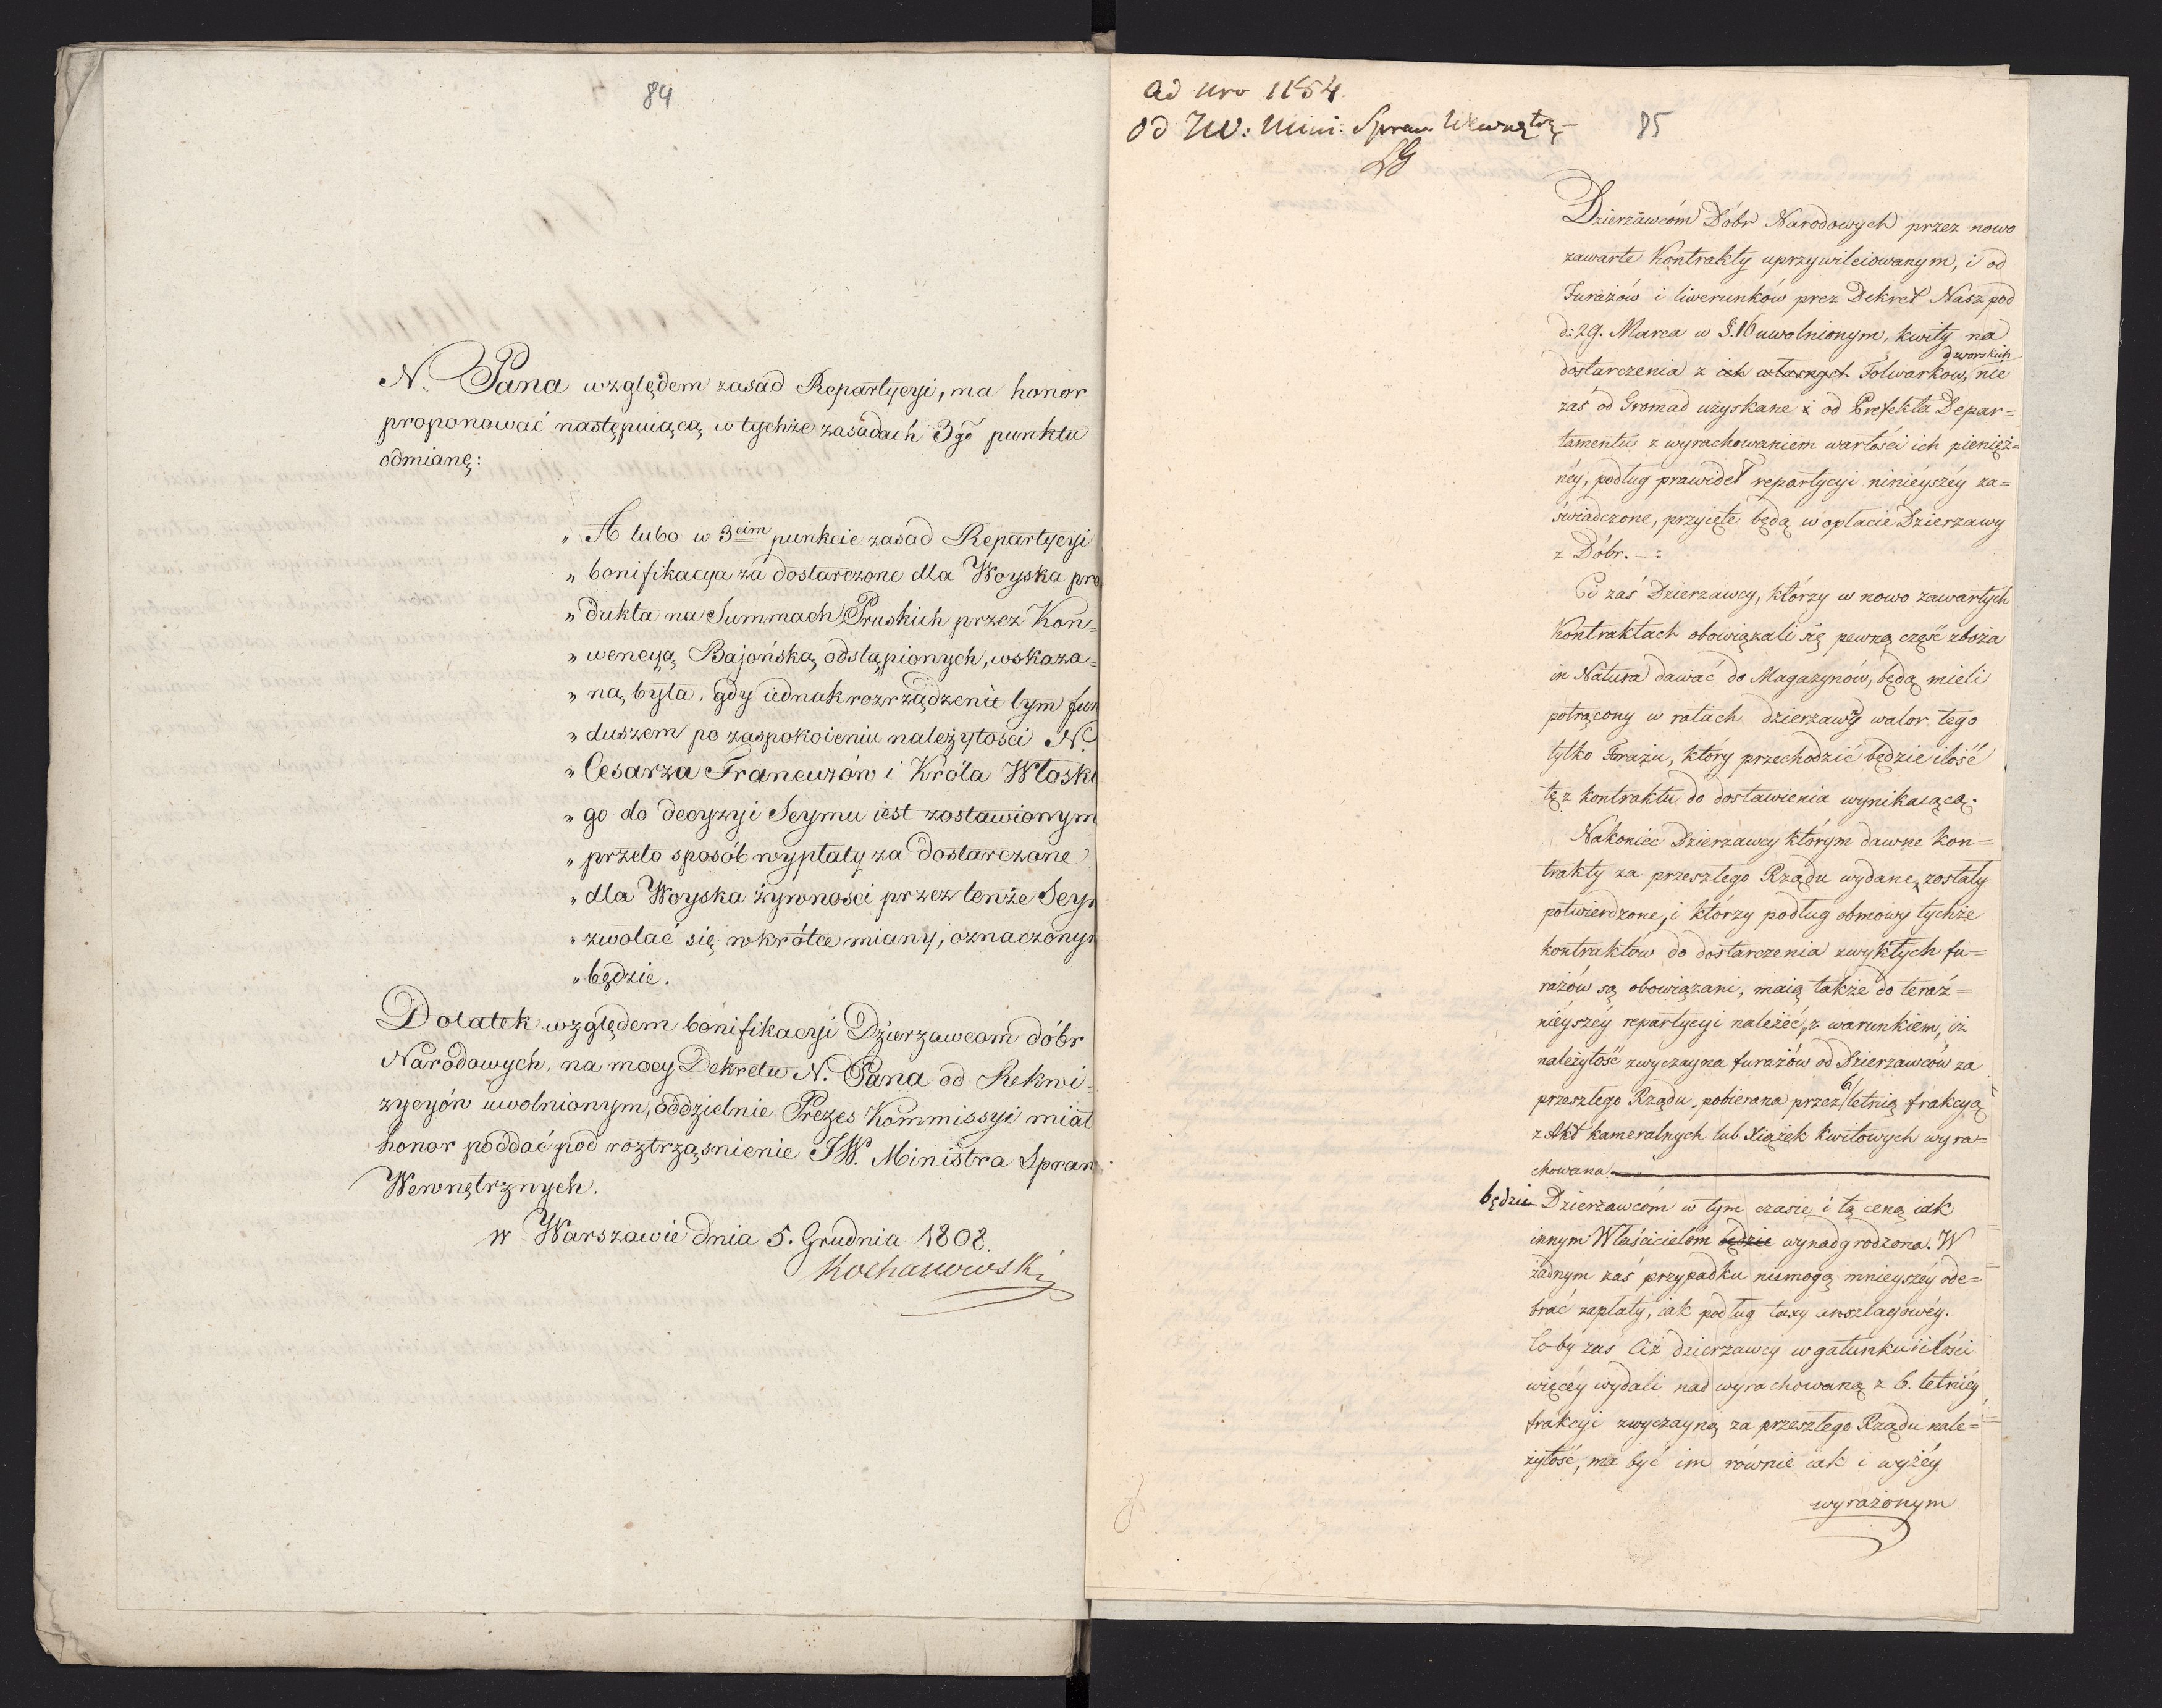 84
N. Pana względem zasad Repartycyi, ma honor
proponować następuiącą w tychże zasadach 3go punktu
odmianę:
„ A lubo w 3cim punkcie zasad Repartycyi
„ bonifikacya za dostarczone dla Woyska pro
„ dukta na Summach Pruskich przez Kon=
„ wencyą Bajońską odstąpionych, wskaza=
„ ną była, gdy iednak rozrządzenie tym fun
„ duszem po zaspokoieniu należytości N.
„ Cesarza Francuzów i Króla Włoskie
„ go do decyzyi Seymu iest zostawionym
„ przeto sposób wypłaty za dostarczane
„ dla Woyska żywności przez tenże Seym
„ zwołać się wkrótce miany, oznaczonym
„ będzie.
Dotatek względem bonifikacyi Dzierzawcom dóbr
Narodowych, na mocy Dekretu N. Pana od Rekwi=
zycyón uwolnionym, oddzielnie Prezes Kommissyi miał
honor poddać pod roztrząśnienie JW. Ministra Spraw
Wewnętrznych.
w Warszawie dnia 5. Grudnia 1808.
Kochanowski
ad Nro 1154.
od JW: Mini: Spraw Wewnętrz
85
Dzierzawcóm Dóbr Narodowych przez nowo
zawarte Kontrakty uprzywileiowanym, i od
Furażów i liwerunków prez Dekret Nasz pod
d: 29. Marca w §.16 uwolnionym, kwity na
dworskich
dostarczenia z ich własnych Folwarkow, nie
zaś od Gromad uzyskane i od Prefekta Depar=
tamentu z wyrachowaniem wartości ich pienięż=
néy, podług prawideł repartycyi ninieyszéy za=
świadczone, przyięte będą w opłacie Dzierzawy
z Dóbr. —:
Ci zaś Dzierzawcy, którzy w nowo zawartych
Kontraktach obowiązali się pewną część zboża
in Natura dawać do Magazynów, będą mieli
potrącony w ratach dzierzawy walor tego
tylko Forażu, który przechodzić będzie ilość
tę z kontraktu do dostawienia wynikaiącą.
Nakoniec Dzierzawcy którym dawne kon=
trakty za przeszłego Rządu wydane, zostały
potwierdzone, i którzy podług obmowy tychże
kontraktów do dostarczenia zwykłych fu=
rażów są obowiązani, maią także do teraź=
nieyszéy repartycyi należeć, z warunkiem, iż
należytość zwyczayna furażów od Dzierzawców za
przeszłego Rządu, pobierana przez 6 letnią frakcyą
z Akt kameralnych lub Xiążek kwitowych wyra=
chowana
będzie Dzierzawcóm w tym czasie i tą ceną iak
innym Właścicielóm będzie wynadgrodzona. W
żadnym zaś przypadku niemogą mnieyszéy ode=
brać zapłaty, iak podług taxy anszlagowéy.
Coby zaś Ciż dzierzawcy w gatunku i ilości
więcéy wydali nad wyrachowaną z 6. letniéy
frakcyi zwyczayną za przeszłego Rządu nale=
żytość, ma być im równie iak i wyżéy
wyrażonym